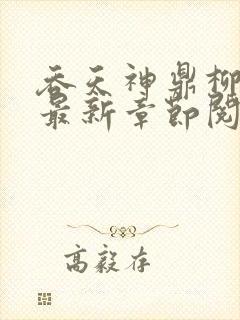 吞天神鼎柳
最新章节阅
高毅存